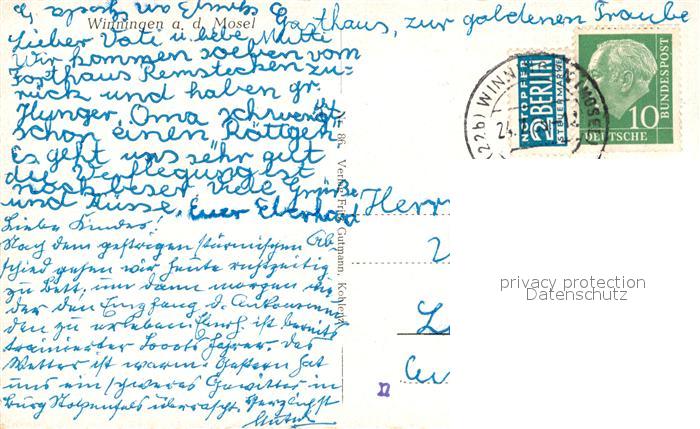 Gasthaus, zur goldenen Traube
Winningen a. d. Mosel
Lieber Vati u. liebe Mutti
Wir kommen soeben vom
Forthaus Remstecken zu-
rück und haben gr.
Hunger. Oma schwenkt
schon einen Rottgen
Es geht uns sehr gut
die Verflegung ist
noch beser. Viele Grüße
und Küsse. Euer Eberhard
Liebe Kinder!
Nach dem gestrigen stürmischen Ab-
schied gehen wir heute rechtzeitig
zu Bett, um dann morgen wie-
der den Empfang d. Ankommen-
den zu erleben. Eberh. ist bereits
trainierter Boots fahrer. Das
Wetter ist warm. Gestern hat
uns ein schweres Gewitter in
Burg Stolzenfels überrascht. Herzlichst
86 Verlag Fritz Gutmann, Koblenz
Herrn
NOTOPFER
2 BERLIN
STEUERMARKE
(22b) WINNINGEN (MOSEL)
24.
DEUTSCHE
BUNDESPOST
10
privacy protection
Datenschutz